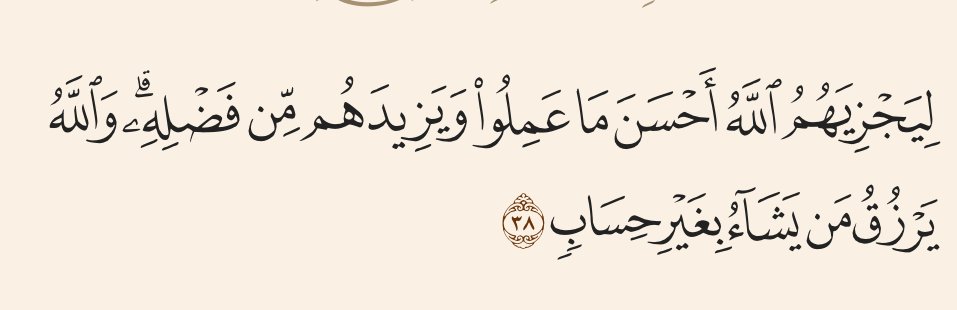 لِيَجْزِيَهُمُ ٱللَّهُ أَحْسَنَ مَا عَمِلُوا۟ وَيَزِيدَهُم مِّن فَضْلِهِۦ ۗ وَٱللَّهُ
يَرْزُقُ مَن يَشَآءُ بِغَيْرِ حِسَابٍ ٣٨